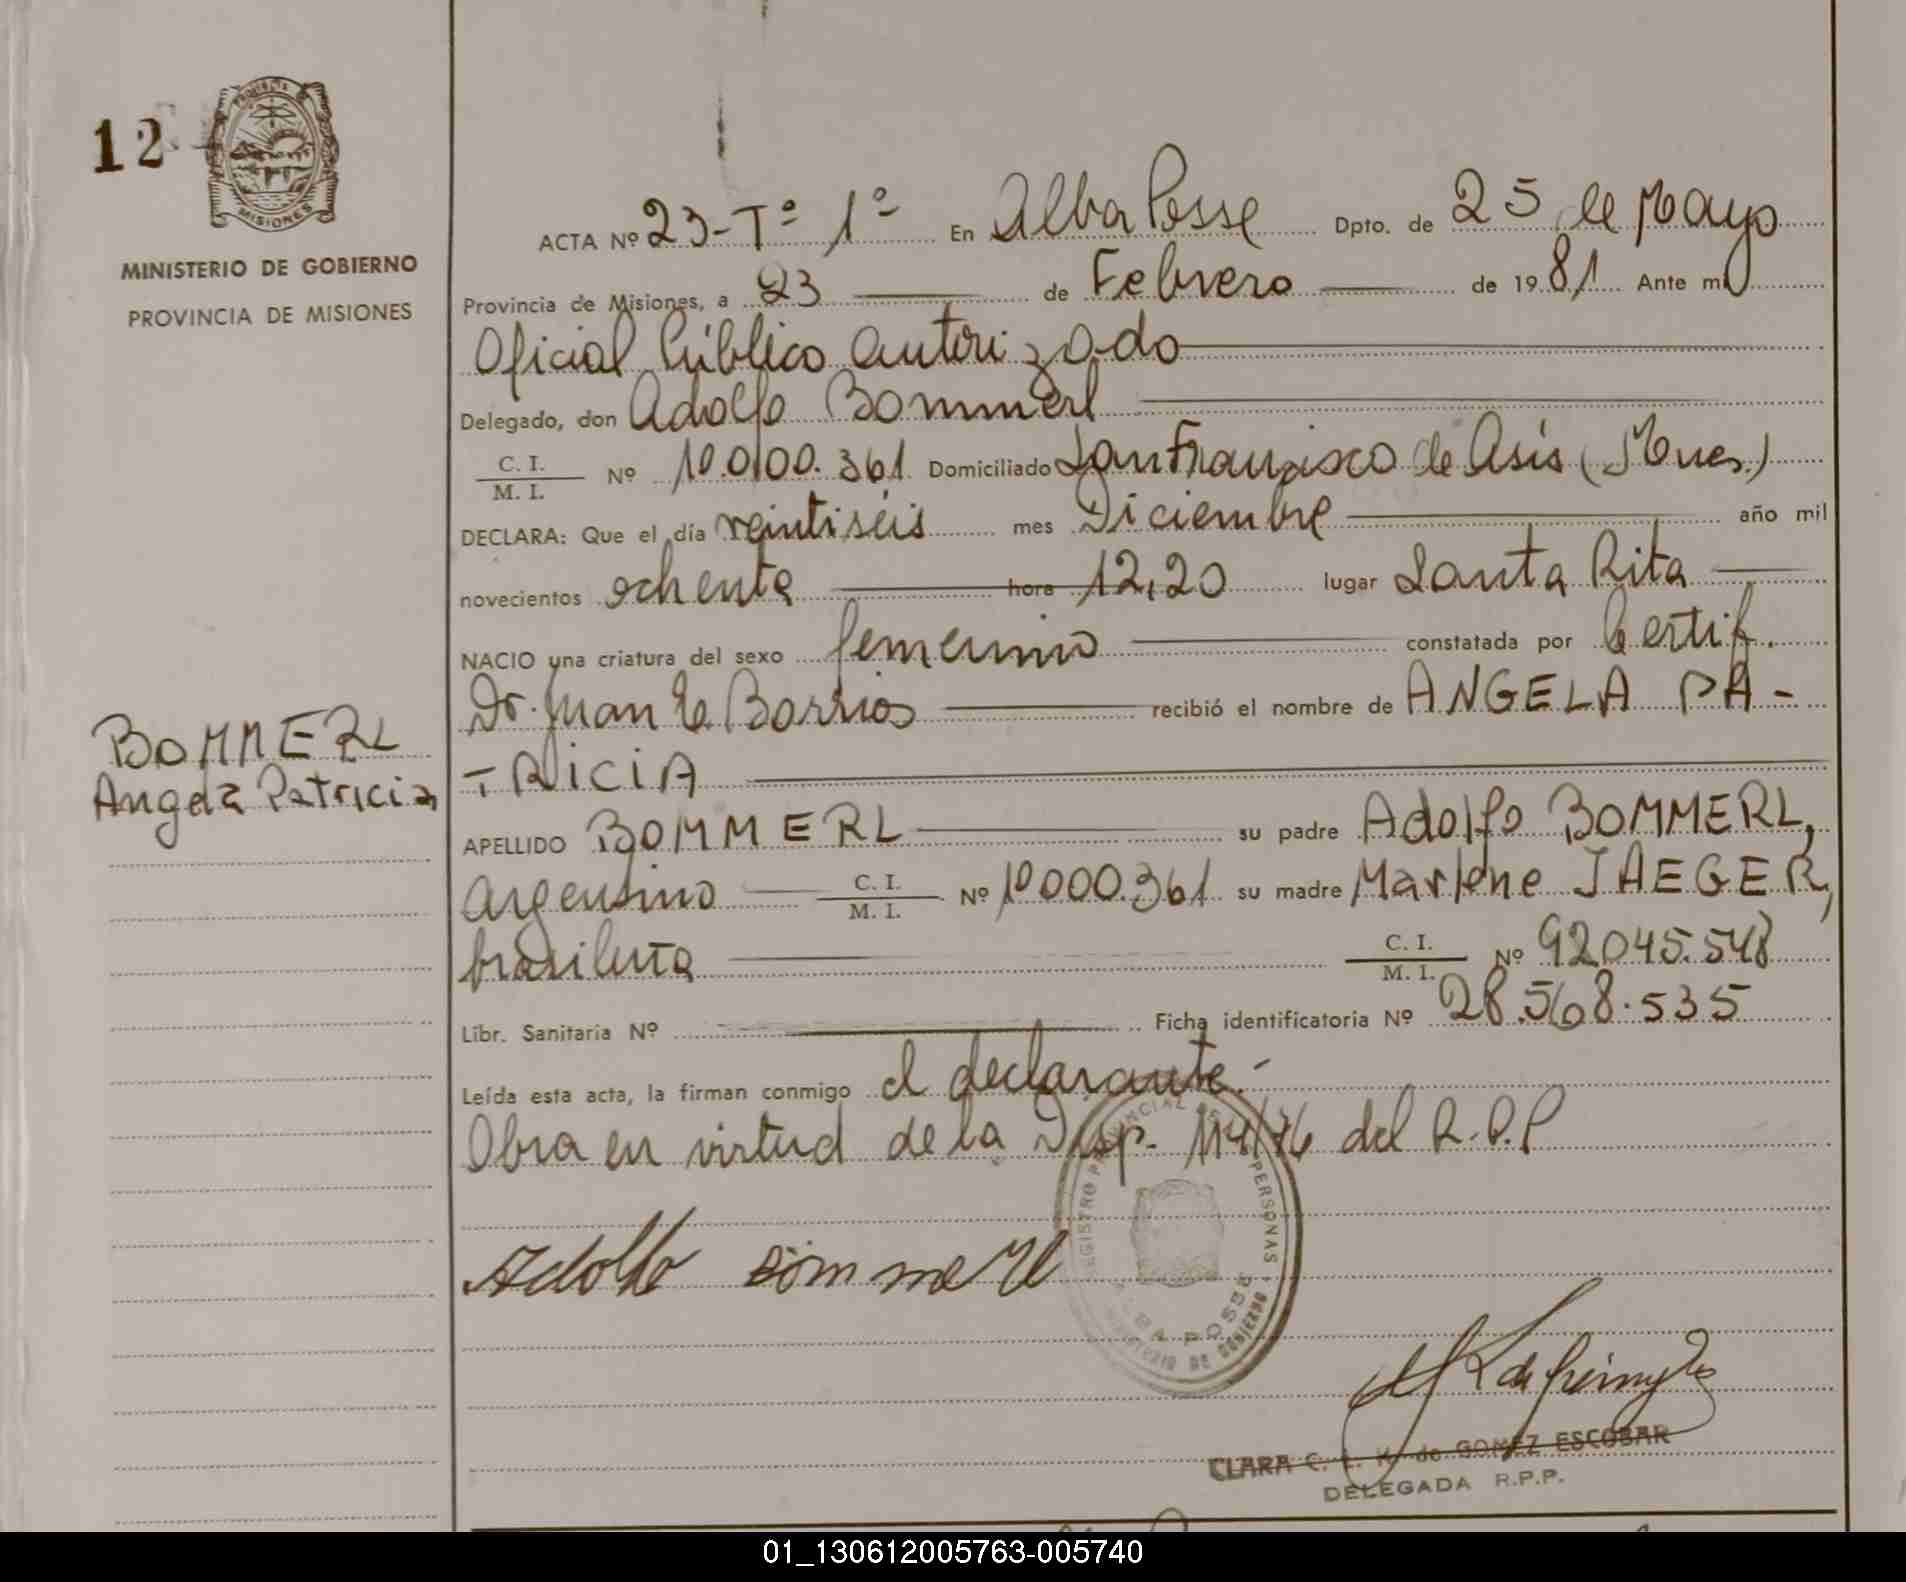 12
PROVINCIA DE
MISIONES
MINISTERIO DE GOBIERNO
PROVINCIA DE MISIONES
BOMMERL
Angela Patricia
ACTA Nº 23-Tº 1º En Alba Posse Dpto. de 25 de Mayo
Provincia de Misiones, a 23 de Febrero de 1981 Ante mi
Oficial Público autorizado
Delegado, don Adolfo Bommerl
C. I.
M. I. Nº 10.000.361 Domiciliado San Francisco de Asís (Mnes.)
DECLARA: Que el día veintiséis mes Diciembre año mil
novecientos ochenta hora 12,20 lugar Santa Rita
NACIO una criatura del sexo femenino constatada por Certif.
Dr. Juan C. Barrios recibió el nombre de ANGELA PA-
TRICIA
APELLIDO BOMMERL su padre Adolfo BOMMERL,
argentino C. I.
M. I. Nº 10000.361 su madre Marlene JAEGER,
brasileña C. I.
M. I. Nº 92045.548
Libr. Sanitaria Nº Ficha identificatoria Nº 28.568.535
Leída esta acta, la firman conmigo el declarante.-
Obra en virtud de la Disp. 114/76 del R.P.P
REGISTRO PROVINCIAL DE PERSONAS
ALBA POSSE
MINISTERIO DE GOBIERNO
Adolfo Bommerl
CLARA C. L. K. de GOMEZ ESCOBAR
DELEGADA R.P.P.
01_130612005763-005740